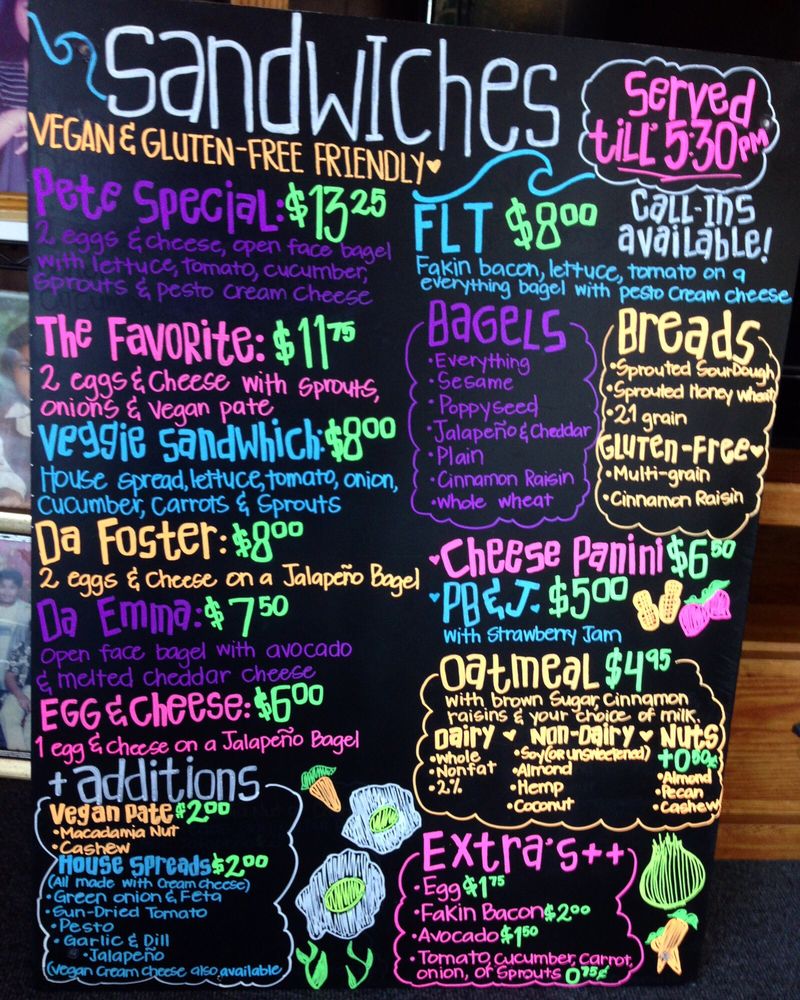 Sandwiches
VEGAN & GLUTEN-FREE FRIENDLY
Served
till' 5:30 PM
Pete Special: $13 25
2 eggs & cheese, open face bagel
with lettuce, tomato, cucumber,
Sprouts & pesto cream cheese
FLT $8 00
Fakin bacon, lettuce, tomato on a
everything bagel with pesto cream cheese
Call-ins
available!
The Favorite: $11 75
2 eggs & Cheese with Sprouts,
onions & Vegan pate
Veggie Sandwhich: $8 00
House spread, lettuce, tomato, onion,
Cucumber, Carrots & Sprouts
Da Foster: $8 00
2 eggs & Cheese on a Jalapeño Bagel
Da Emma: $7 50
Open face bagel with avocado
& melted cheddar cheese
Egg & Cheese: $6 00
1 egg & cheese on a Jalapeño Bagel
Bagels
•Everything
•Sesame
•Poppyseed
•Jalapeño & Cheddar
•Plain
•Cinnamon Raisin
•Whole wheat
Breads
•Sprouted SourDough
•Sprouted Honey wheat
•21 grain
Gluten-Free
•Multi-grain
•Cinnamon Raisin
Cheese Panini $6 50
PB & J. $5 00
with Strawberry Jam
Oatmeal $4 95
with brown Sugar, Cinnamon
raisins & your choice of milk.
Dairy
•Whole
•Nonfat
•2%
Non-Dairy
•Soy (OR unsweetened)
•Almond
•Hemp
•Coconut
Nuts
+0.50¢
•Almond
•Pecan
•Cashew
+ additions
Vegan Pate $2 00
•Macadamia Nut
•Cashew
House Spreads $2 00
(All made with Cream cheese)
•Green onion & Feta
•Sun-Dried Tomato
•Pesto
•Garlic & Dill
•Jalapeño
(Vegan Cream cheese also available)
Extra's ++
•Egg $1 75
•Fakin Bacon $2 00
•Avocado $1 50
•Tomato, cucumber, carrot,
onion, or Sprouts 0.75¢